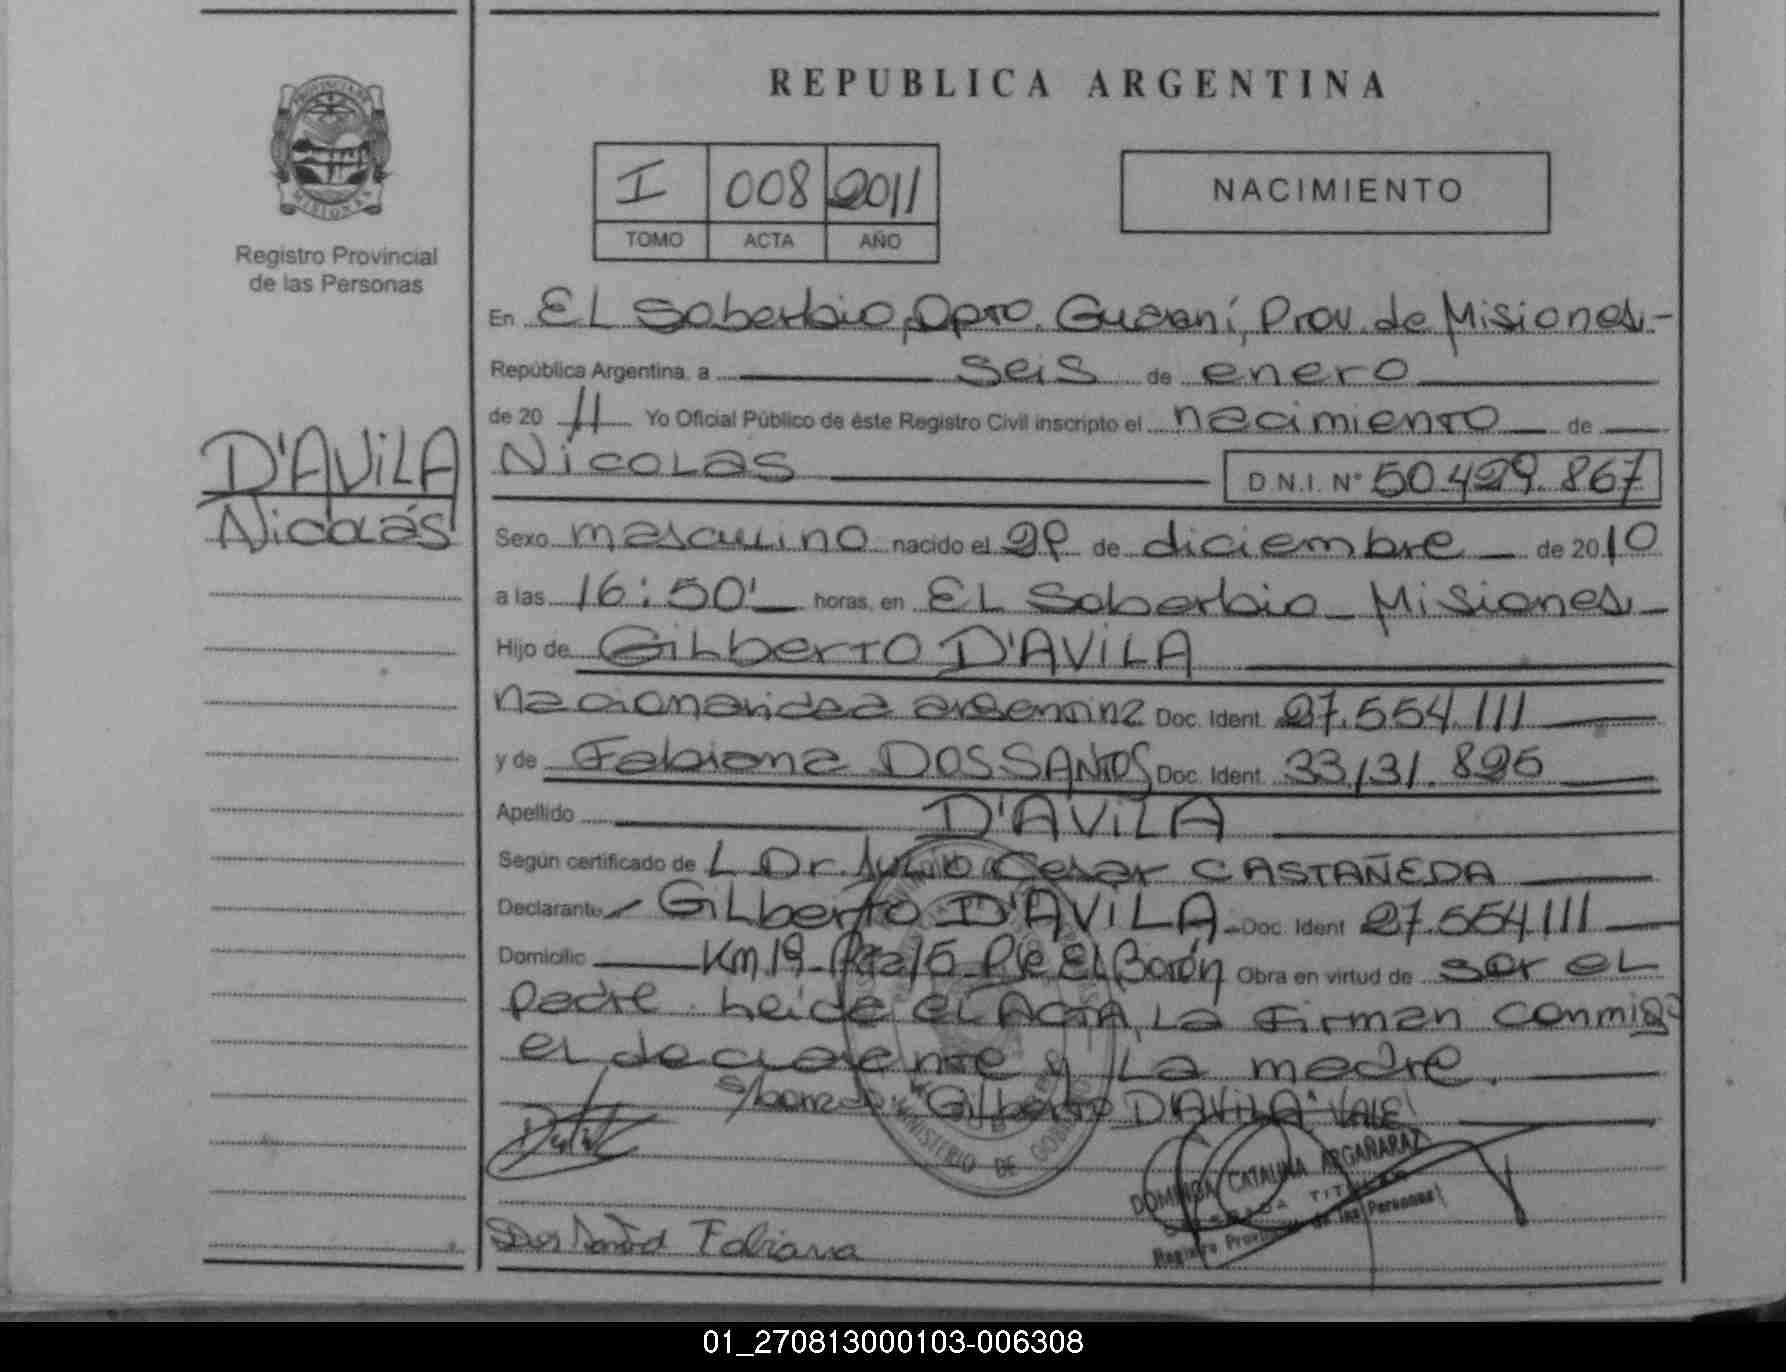 REPUBLICA ARGENTINA
PROVINCIA DE
MISIONES
Registro Provincial
de las Personas
I 008 2011
TOMO ACTA AÑO
NACIMIENTO
En EL Soberbio, Dpto. Guaraní, Prov. de Misiones.-
República Argentina, a seis de enero
de 20 11 Yo Oficial Público de éste Registro Civil inscripto el nacimiento de
D'AVILA
Nicolás
NICOLAS D.N.I. Nº 50.429.867
Sexo masculino nacido el de diciembre de 2010
a las 16:50' horas, en EL Soberbio - Misiones
Hijo de Gilberto D'AVILA
nacionalidad argentina Doc. Ident. 27.554.111
y de Fabiana DOS SANTOS Doc. Ident. 33.131.895
Apellido D'AVILA
Según certificado de L Dr. Julio Cesar CASTAÑEDA
Declarante Gilberto D'AVILA Doc. Ident 27.554.111
Domicilio Km 19 El Obra en virtud de ser el
padre. Leída el ACTA, La Firman conmigo
el declarante y La madre.
s/borrado: "Gilberto D'AVILA" VALE
MINISTERIO DE GOBIERNO
DOMINGA CATALINA ARGAÑARAZ
TITULAR
Registro Provincial de las Personas
Dos Santos Fabiana
01_270813000103-006308